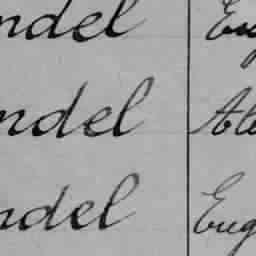 ndel Eug
ndel Ale
ndel Eug